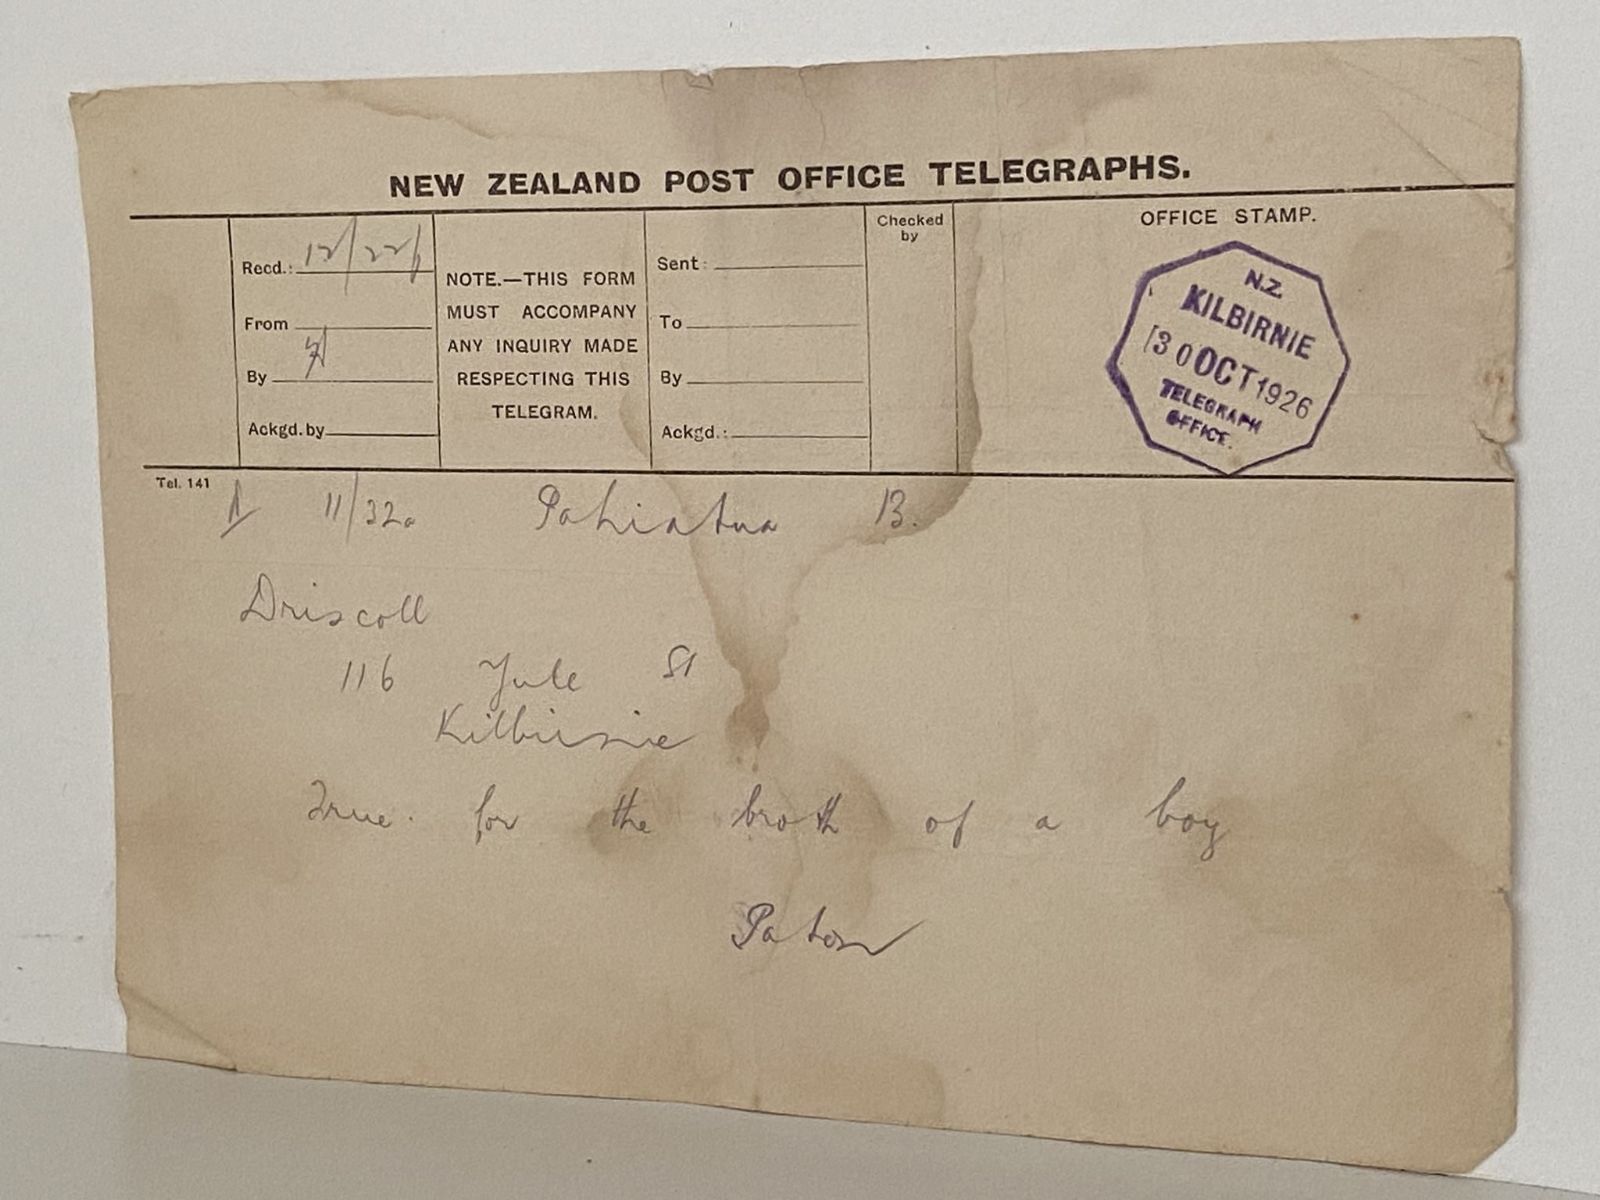 NEW ZEALAND POST OFFICE TELEGRAPHS.
Recd.: 12/22
From
By
Ackgd. by
NOTE.—THIS FORM
MUST ACCOMPANY
ANY INQUIRY MADE
RESPECTING THIS
TELEGRAM.
Sent:
To
By
Ackgd.:
Checked
by
OFFICE STAMP.
N.Z.
KILBIRNIE
30 OCT 1926
TELEGRAPH
OFFICE.
Tel. 141
11/32a Pahiatua 13.
Driscoll
116 Yule St
Kilbirnie
True for the broth of a boy
Paton